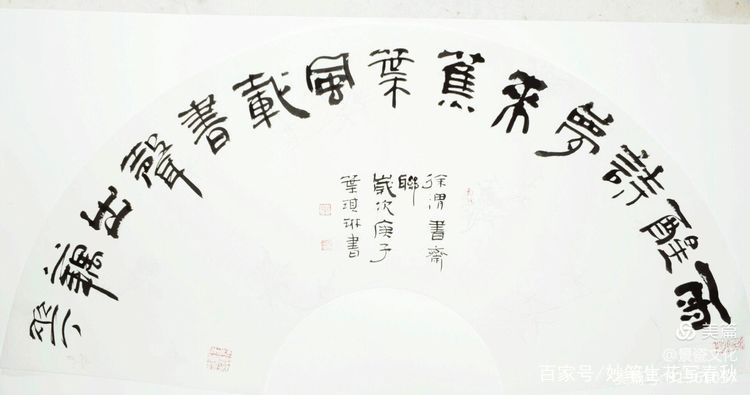 雨醒詩夢來蕉葉風載書聲出藕花
徐渭書齋
聯
歲次庚子
葉琪琳書
美篇
@景瓷文化
百家号/妙笔生花写春秋